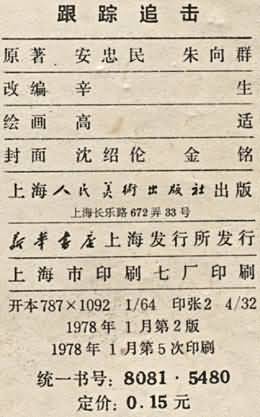 跟踪追击
原著 安忠民 朱向群
改编 辛生
绘画 高适
封面 沈绍伦 金铭
上海人民美術出版社出版
上海长乐路672弄33号
新华書店上海发行所发行
上海市印刷七厂印刷
开本787×1092 1/64 印张2 4/32
1978年1月第2版
1978年1月第5次印刷
统一书号：8081·5480
定价：0.15元